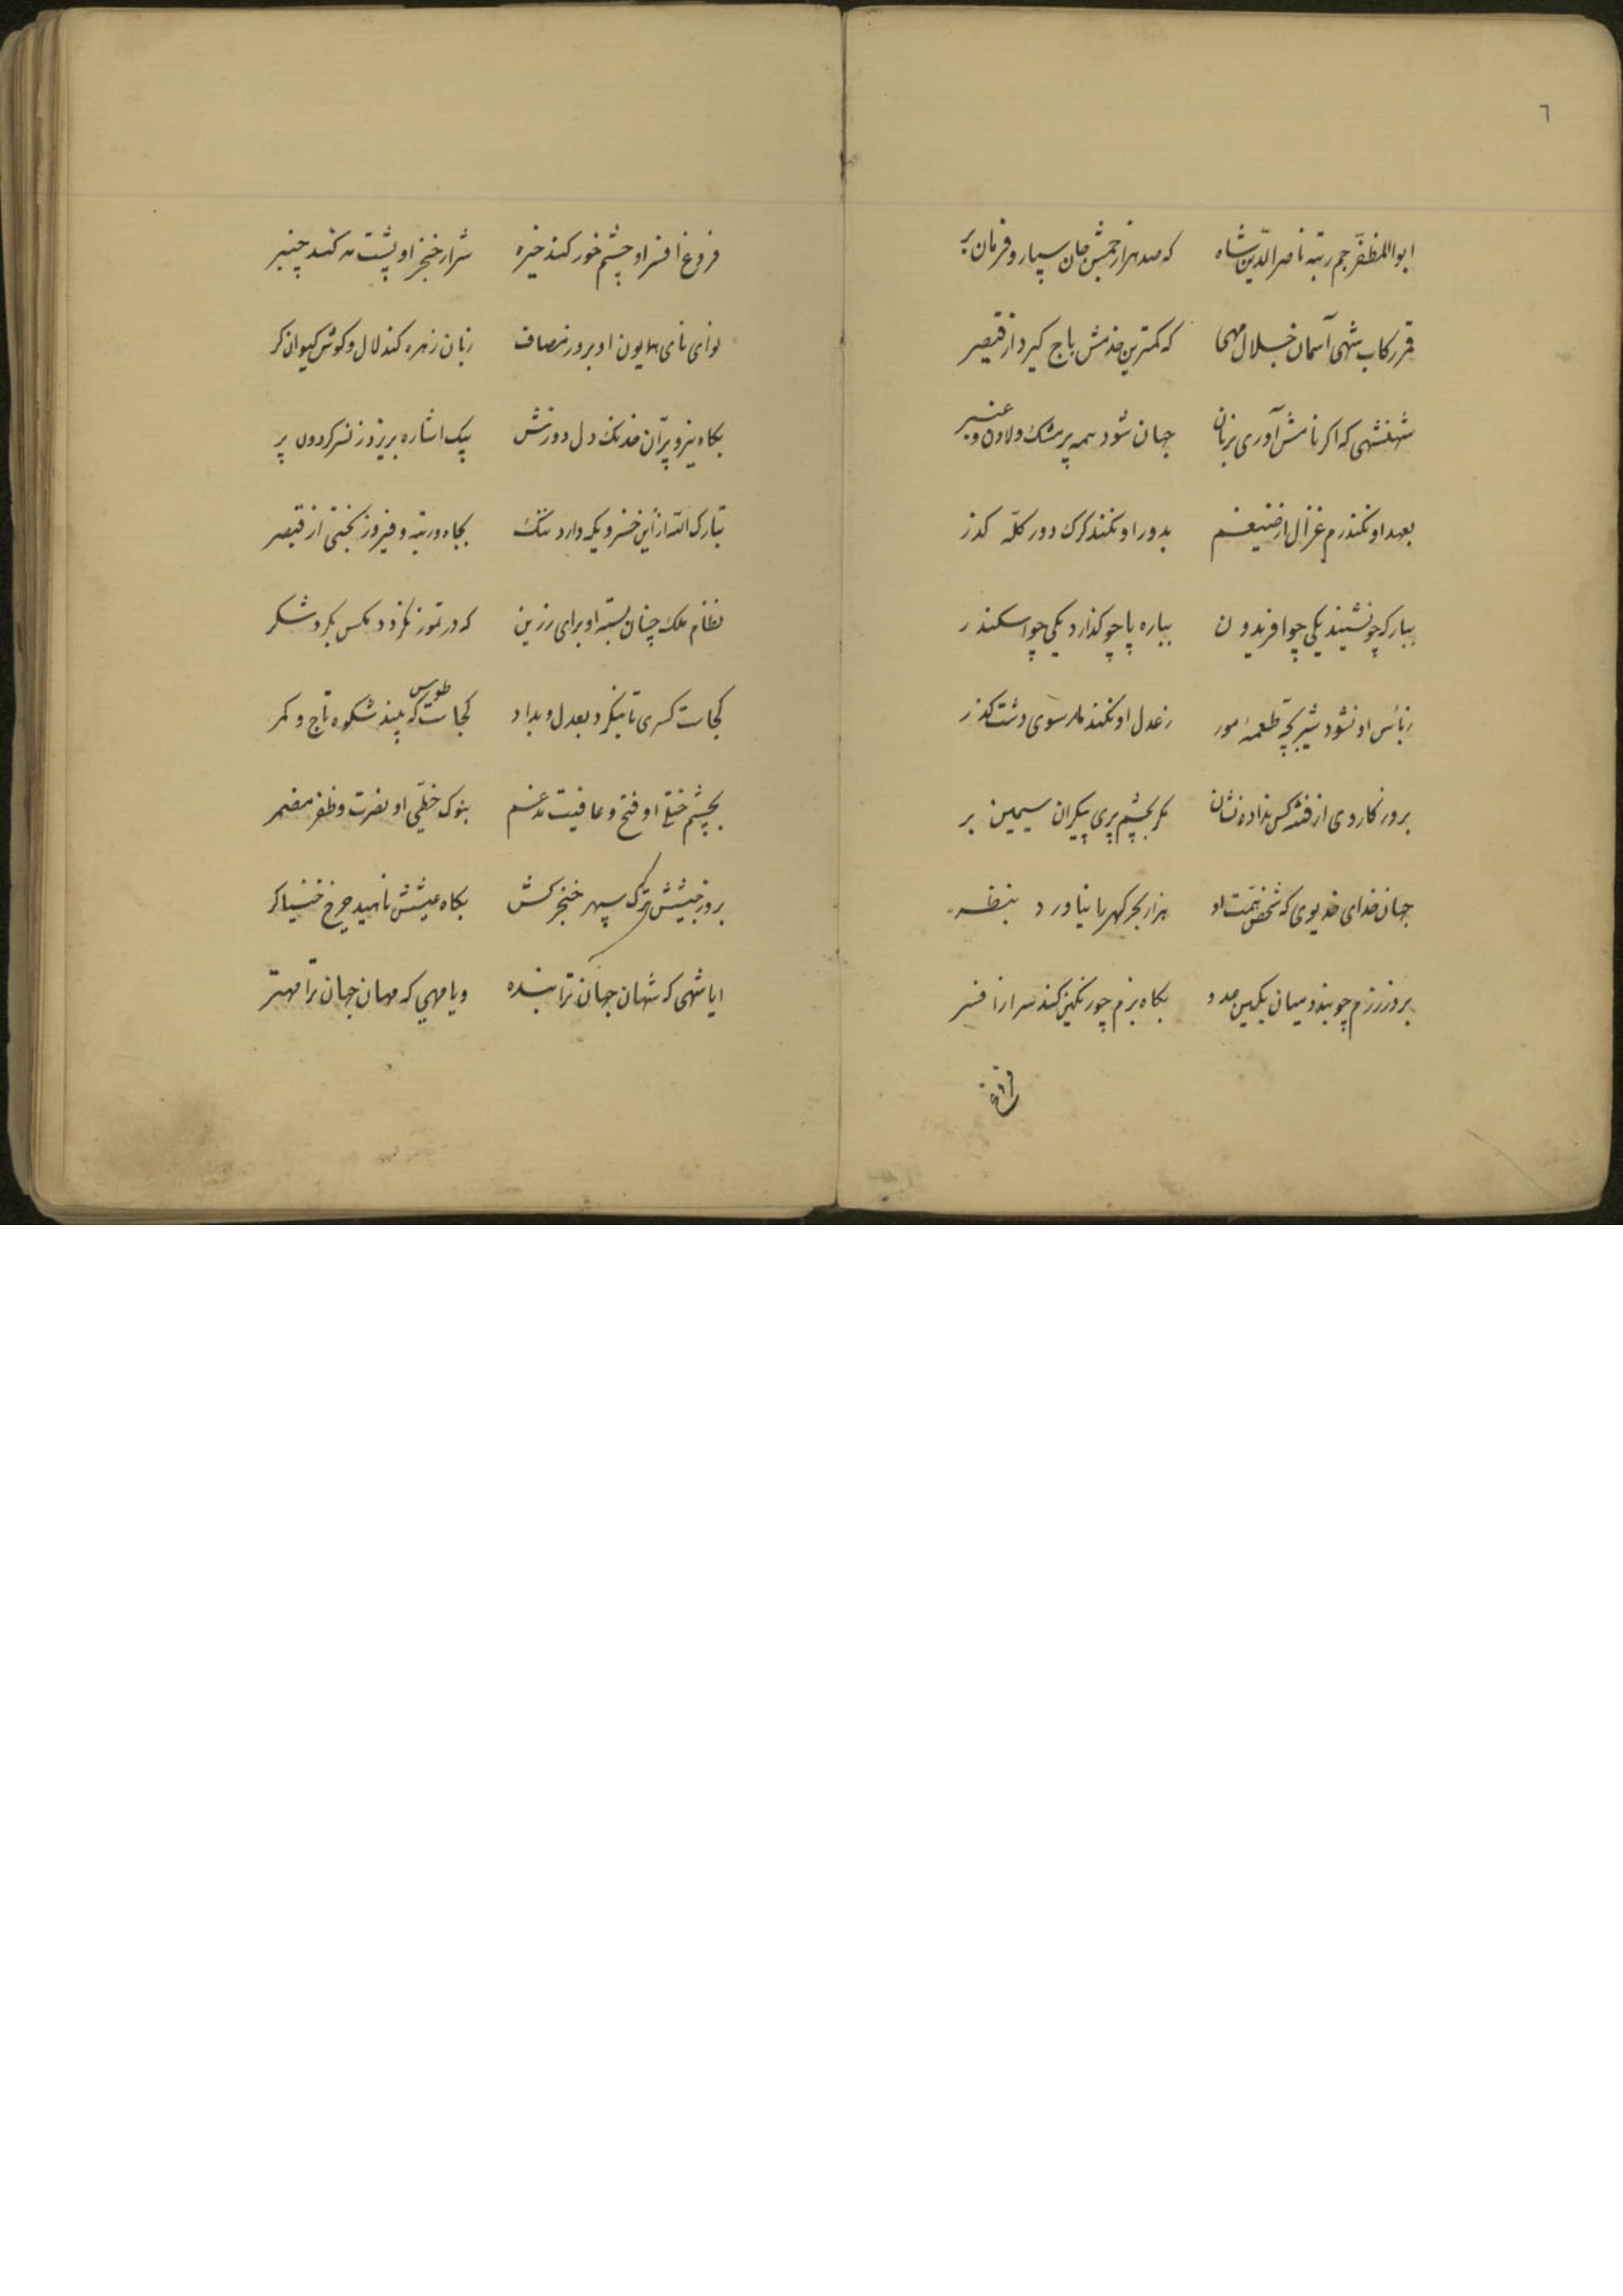 ٦
ابوالمظفّر جم رتبه ناصرالدّین شاه که صد هزار جمش جان سپار و فرمان بر
قمر رکاب شهی آسمان جلال مهی که کمترین خدمش باج کیرد از قیصر
شهنشهی که اکر نامش آوری بزبان جهان شود همه پر مشک و لادن و عنبر
بعهد او نکند رم غزال از ضیغم بدور او نکند کرک دور کلّه کذر
ببارکه چو نشیند یکی چو افریدون بباره پا چو کذارد یکی چو اسکندر
زباٴس او نشود شیر بچّه طعمهٔ مور زعدل او نکند مار سوی دشت کذر
بروزکار وی از فتنه کس نداده نشان مکر بچشم پری پیکران سیمین بر
جهان خدای خدیوی که شخص همّت او هزار بحر کهر را نیاورد بنظر
بروز رزم چو بندد میان بکین عدو بکاه بزم چو رنکین کند سر از افسر
فروغ
فروغ افسر او چشم خور کند خیره شرار خنجر او پشت مه کند چنبر
نوای نای همایون او بروز مصاف زبان زهره کند لال و کوش کیوان کر
بکاه نیرو پرّان خدنک دل دوزش بیک اشاره بریزد ز نسر کردون پر
تبارک الله از این خسرویکه دارد ننک بجاه و رتبه و فیروز بختی از قیصر
نظام ملک چنان بسته او برای رزین که در تموز نکردد مکس بکرد شکر
کجاست کسری تا بنکرد بعدل و بداد کجاست طوس که بیند شکوه تاج و کمر
بچشم ختلی او فتح و عافیت مدغم بنوک خطّی او نصرت و ظفر مضمر
بروز جیشش ترک سپهر خنجر کش بکاه عیشش ناهید چرخ خنیاکر
ایا شهی که شهان جهان ترا بنده ویا مهی که مهان جهان ترا مهتر